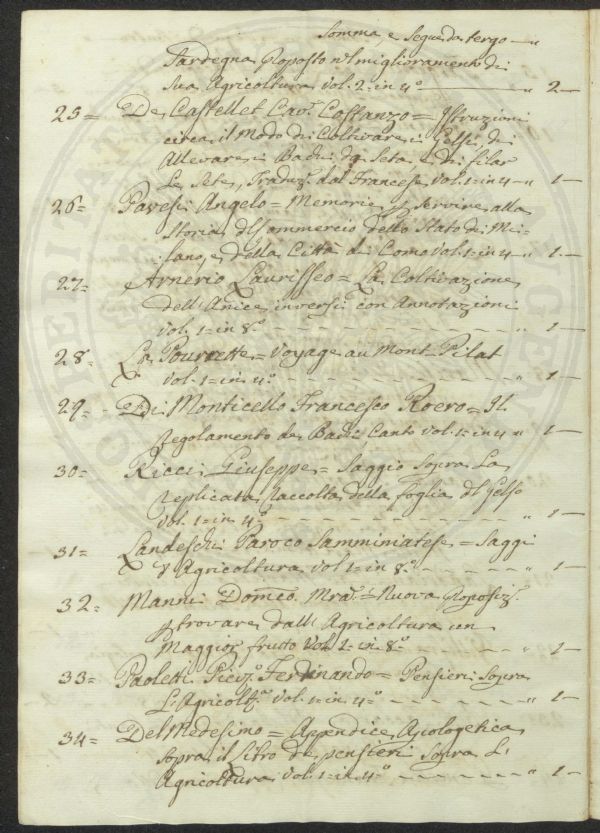 Somma, e Segue da tergo — "
Sardegna Proposto nel miglioramento di
Sua Agricoltura Vol. 2. in 4.° — " 2 —
25= De Castellet Cav.r Costanzo = Istruzioni
circa il Modo di Coltivare i Gelsi, di
Allevare i Bachi da Seta e di filar
Le Sete, Traduz.e dal Francese Vol. 1 = in 4 ~ " 1 —
26= Pavesi Angelo = Memorie p servire alla
Storia del Commercio dello Stato di Mi-
lano, e della Città di Como Vol. 1 = in 4 ~ " 1 —
27= Arnerio Laurisseo = La Coltivazione
dell'Anice in versi con Annotazioni
Vol. 1 = in 8.° — " 1 —
28= La Pourrette = Voyage au Mont Pilat
Vol. 1 = in 4.° — " 1 —
29= Di Monticello Francesco Roero = Il
Regolamento de Bachi Canto Vol. 1 = in 4 " 1 —
30= Ricci Giuseppe = Saggio Sopra La
replicata raccolta della foglia del Gelso
Vol. 1 = in 4.° — " 1 —
31= Landeschi Paroco Samminiatese = Saggi
d'Agricoltura Vol 1 = in 8.° — " 1 —
32= Manni Dom.co M.ra = Nuova Proposiz.e
p trovare dall'Agricoltura un
Maggior frutto Vol. 1 = in 8.° — " 1 —
33= Paoletti Piev.o Ferdinando = Pensieri Sopra
L'Agricolt.a Vol. 1 = in 4.° — " 1 —
34= Del Medesimo = Appendice Apologetica
Sopra il Libro de pensieri Sopra L'
Agricoltura Vol. 1 = in 4.° — " 1 —